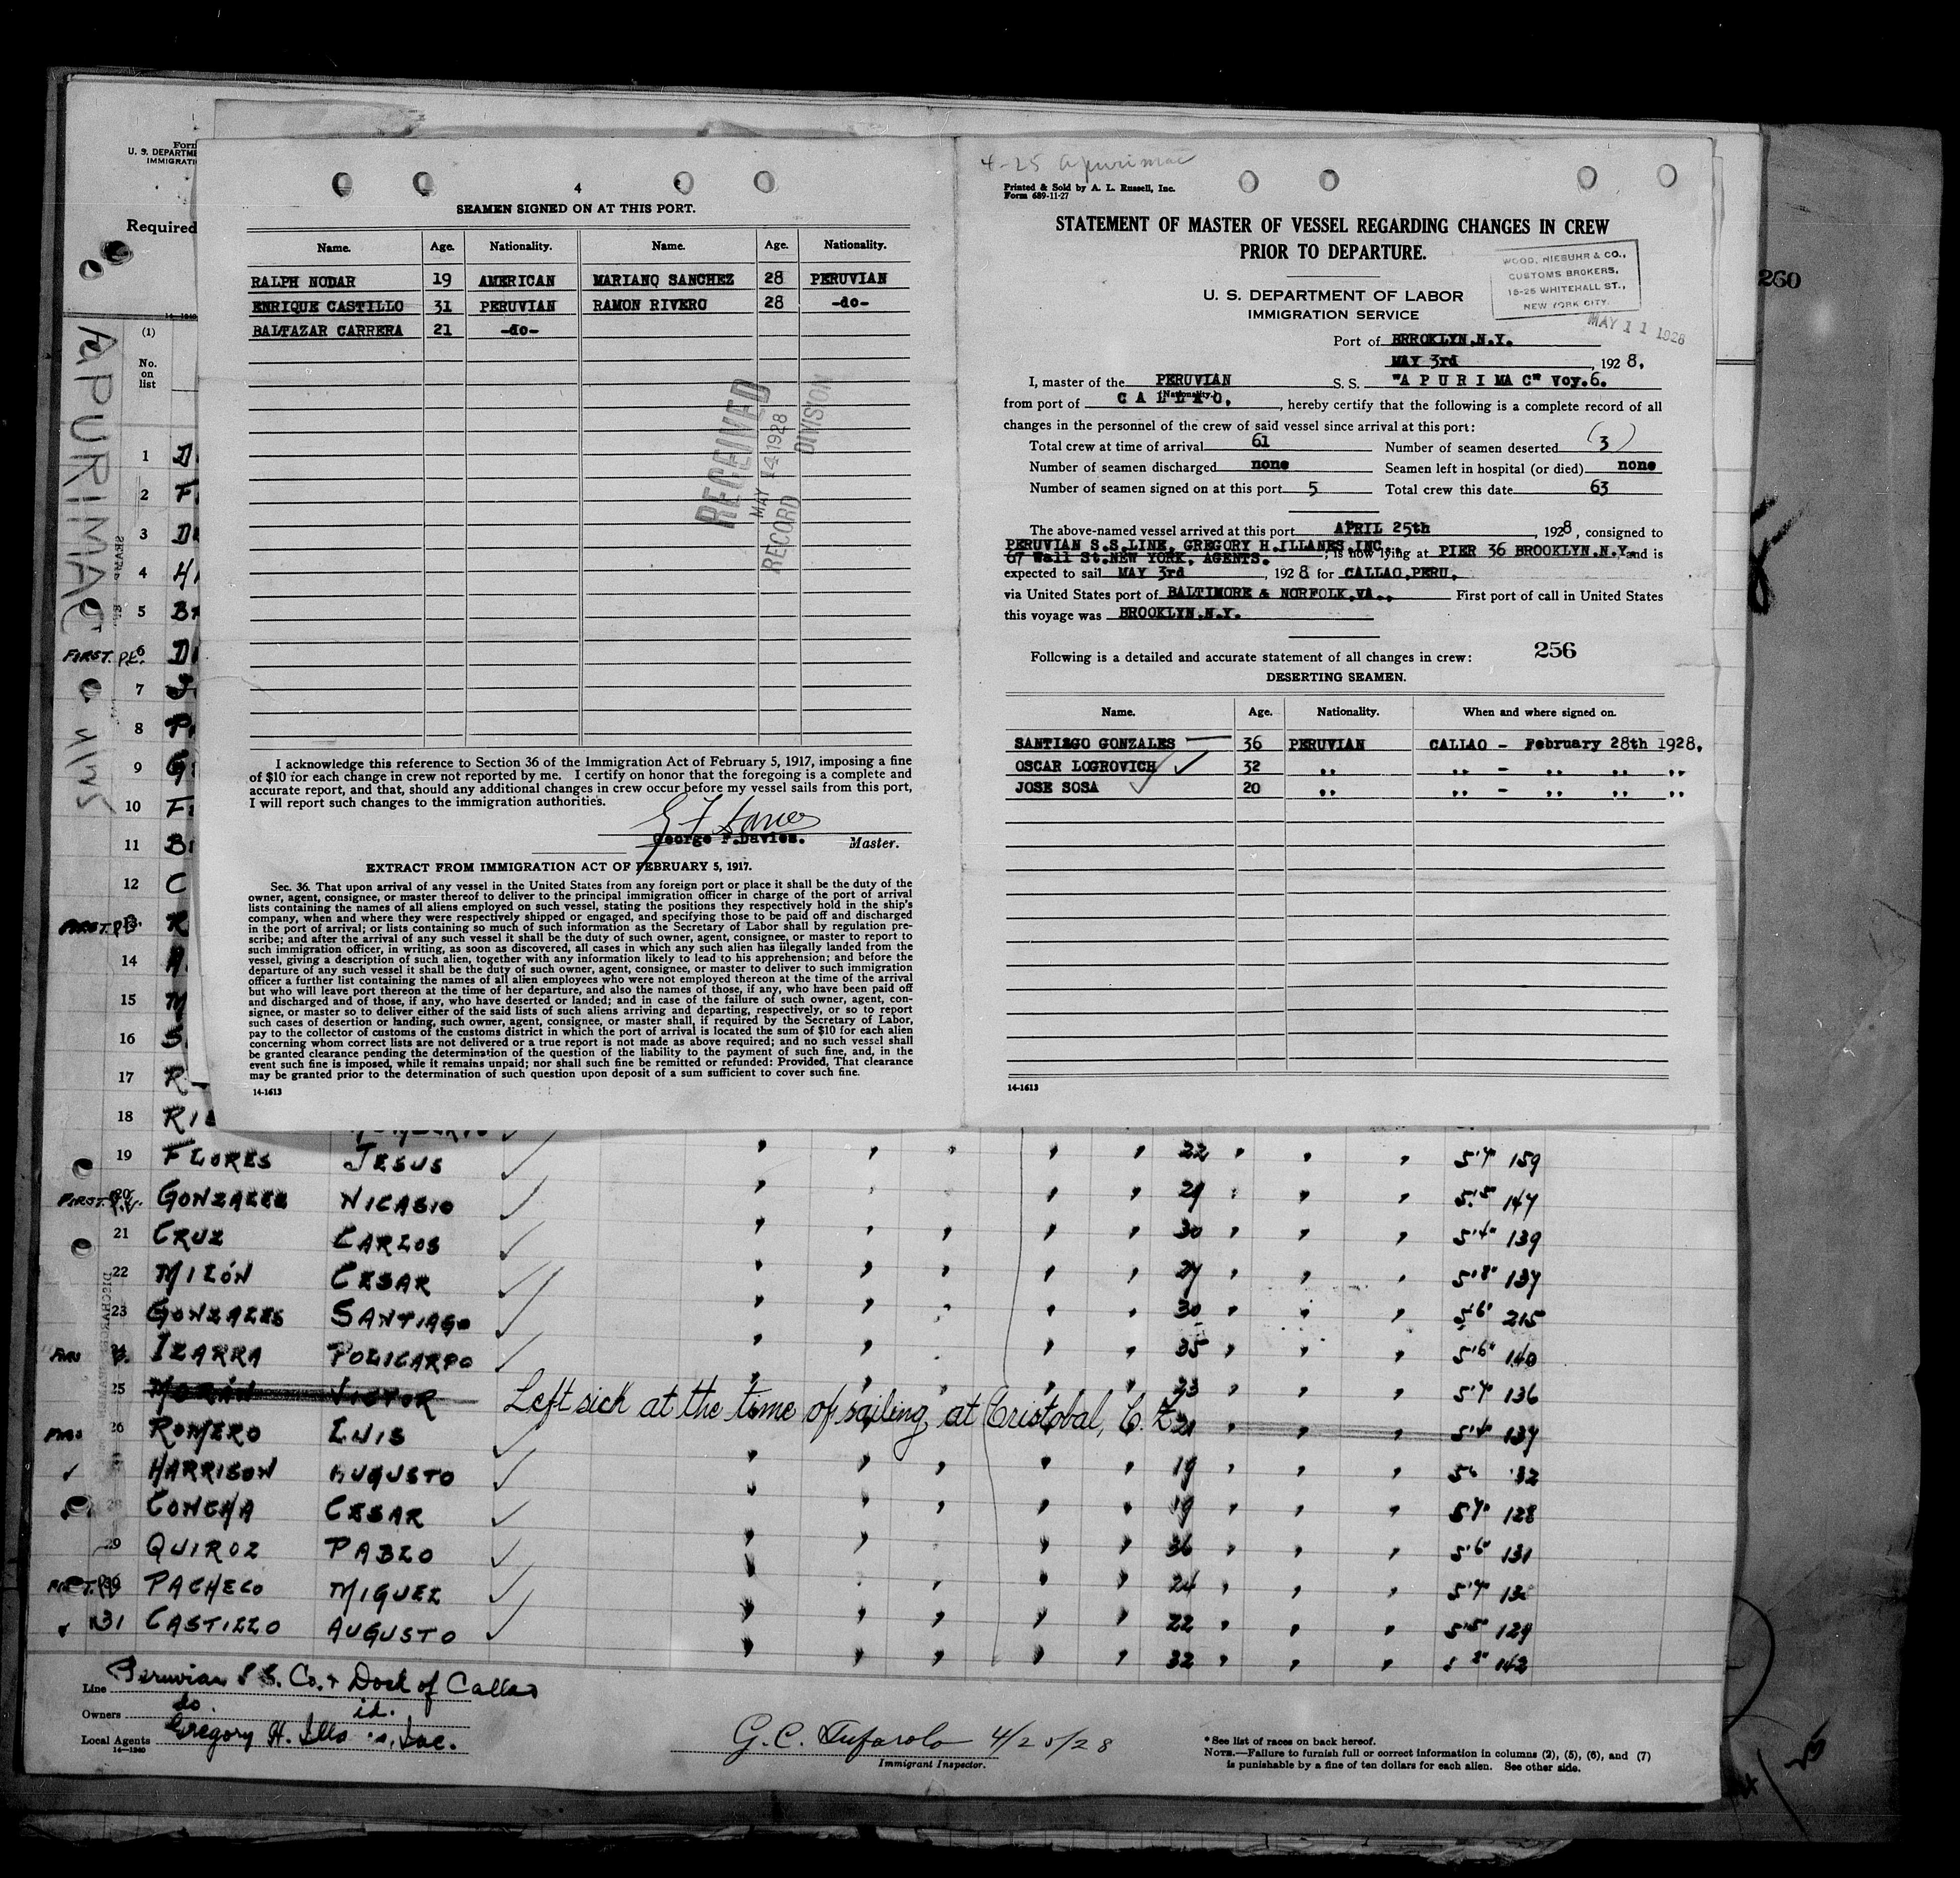 4
SEAMEN SIGNED ON AT THIS PORT.
Name. Age. Nationality. Name. Age. Nationality.
RALPH NODAR 19 AMERICAN MARIANO SANCHEZ 28 PERUVIAN
ENRIQUE CASTILLO 31 PERUVIAN RAMON RIVERO 28 -do-
BALTAZAR CARRERA 21 -do-
RECEIVED
MAY 14 1928
RECORD DIVISION
I acknowledge this reference to Section 36 of the Immigration Act of February 5, 1917, imposing a fine
of $10 for each change in crew not reported by me. I certify on honor that the foregoing is a complete and
accurate report, and that, should any additional changes in crew occur before my vessel sails from this port,
I will report such changes to the immigration authorities.
George F.Davies. Master.
EXTRACT FROM IMMIGRATION ACT OF FEBRUARY 5, 1917.
Sec. 36. That upon arrival of any vessel in the United States from any foreign port or place it shall be the duty of the
owner, agent, consignee, or master thereof to deliver to the principal immigration officer in charge of the port of arrival
lists containing the names of all aliens employed on such vessel, stating the positions they respectively hold in the ship's
company, when and where they were respectively shipped or engaged, and specifying those to be paid off and discharged
in the port of arrival; or lists containing so much of such information as the Secretary of Labor shall by regulation pre-
scribe; and after the arrival of any such vessel it shall be the duty of such owner, agent, consignee, or master to report to
such immigration officer, in writing, as soon as discovered, all cases in which any such alien has illegally landed from the
vessel, giving a description of such alien, together with any information likely to lead to his apprehension; and before the
departure of any such vessel it shall be the duty of such owner, agent, consignee, or master to deliver to such immigration
officer a further list containing the names of all alien employees who were not employed thereon at the time of the arrival
but who will leave port thereon at the time of her departure, and also the names of those, if any, who have been paid off
and discharged and of those, if any, who have deserted or landed; and in case of the failure of such owner, agent, con-
signee, or master so to deliver either of the said lists of such aliens arriving and departing, respectively, or so to report
such cases of desertion or landing, such owner, agent, consignee, or master shall, if required by the Secretary of Labor,
pay to the collector of customs of the customs district in which the port of arrival is located the sum of $10 for each alien
concerning whom correct lists are not delivered or a true report is not made as above required; and no such vessel shall
be granted clearance pending the determination of the question of the liability to the payment of such fine, and, in the
event such fine is imposed, while it remains unpaid; nor shall such fine be remitted or refunded: Provided, That clearance
may be granted prior to the determination of such question upon deposit of a sum sufficient to cover such fine.
14-1613
4-25 Apurimac
Printed & Sold by A. L. Russell, Inc.
Form 689-11-27
STATEMENT OF MASTER OF VESSEL REGARDING CHANGES IN CREW
PRIOR TO DEPARTURE.
WOOD, NIEBUHR & CO.,
CUSTOMS BROKERS,
15-25 WHITEHALL ST.,
NEW YORK CITY.
MAY 11 1928
U. S. DEPARTMENT OF LABOR
IMMIGRATION SERVICE
Port of BRROKLYN.N.Y.
MAY 3rd, 1928.
I, master of the PERUVIAN S. S. "A P U R I M A C" Voy.6.
(Nationality.)
from port of C A L L A O., hereby certify that the following is a complete record of all
changes in the personnel of the crew of said vessel since arrival at this port:
Total crew at time of arrival 61 Number of seamen deserted (3)
Number of seamen discharged none Seamen left in hospital (or died) none
Number of seamen signed on at this port 5 Total crew this date 63
The above-named vessel arrived at this port APRIL 25th, 1928, consigned to
PERUVIAN S.S.LINE, GREGORY H.ILLANES.INC.
67 Wall St.NEW YORK, AGENTS., is now lying at PIER 36 BROOKLYN.N.Y. and is
expected to sail MAY 3rd, 1928 for CALLAO.PERU.
via United States port of BALTIMORE & NORFOLK.VA., First port of call in United States
this voyage was BROOKLYN.N.Y.
Following is a detailed and accurate statement of all changes in crew: 256
DESERTING SEAMEN.
Name. Age. Nationality. When and where signed on.
SANTIAGO GONZALES 36 PERUVIAN CALLAO - February 28th 1928.
OSCAR LOGROVICH 32 ,, ,, - ,, ,, ,,
JOSE SOSA 20 ,, ,, - ,, ,, ,,
14-1613
260
Form
U. S. DEPARTME
IMMIGRATI
Required
14-1940
(1)
No.
on
list
APURIMAC
1
2
3
4
5
FIRST. 6
7
8
9
10
11
12
14
15
16
17
18
19 FLORES JESUS 22 159
GONZALES NICASIO 29 5'5" 147
21 CRUZ CARLOS 30 5'4" 139
22 MILÓN CESAR 5'8" 137
23 GONZALES SANTIAGO 30 5'6" 215
IZARRA POLICARPO 35 5'6" 140
25 MORÁN VICTOR Left sick at the time of sailing at Cristobal, C. Z. 23 136
26 ROMERO LUIS 21 5'4"
HARRISON AUGUSTO 19
CONCHA CESAR 19 128
29 QUIROZ PABLO 36 5'6" 131
PACHECO MIGUEL 24
31 CASTILLO AUGUSTO 22 5'5" 129
32 142
Line Peruvian S S. Co. & Dock of Callao
Owners do. id.
Local Agents Gregory H. Inc.
14-1940
G. C. Tufarolo 4/25/28
Immigrant Inspector.
* See list of races on back hereof.
NOTE.—Failure to furnish full or correct information in columns (2), (5), (6), and (7)
is punishable by a fine of ten dollars for each alien. See other side.